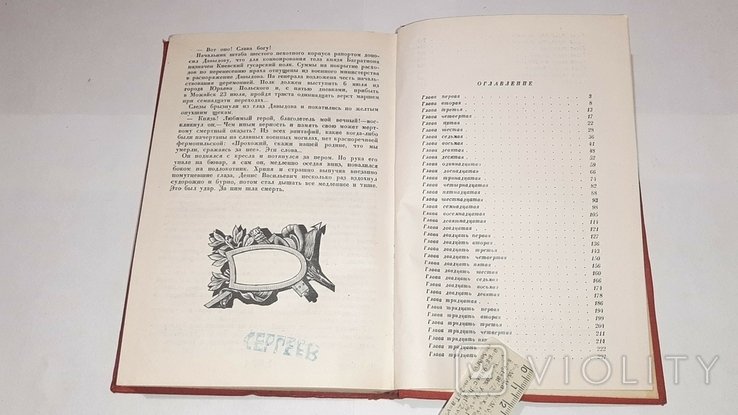 — Вот оно! Слава богу!
Начальник штаба шестого пехотного корпуса рапортом доно-
сил Давыдову, что для конвоирования тела князя Багратиона
назначен Киевский гусарский полк. Суммы на покрытие расхо-
дов по перенесению праха отпущены из военного министерства
в распоряжение Давыдова. На генерала положена честь началь-
ствования церемонией. Полк должен выступить 6 июля из
города Юрьева Польского и, с пятью дневками, прибыть
в Можайск 23 июля, пройдя тракта одиннадцать верст маршем
при семнадцати переходах...
Слезы брызнули из глаз Давыдова и покатились по желтым
опухшим щекам.
— Князь! Любимый герой, благодетель мой вечный!—вос-
кликнул он.— Чем иным верность и память свою может мерт-
вому смертный оказать? Из всех эпитафий, какие когда-либо
были начертаны на славных военных могилах, нет красноречивей
фермопильской: «Прохожий, скажи нашей родине, что мы
умерли, сражаясь за нее». Эти слова...
Он поднялся с кресла и потянулся за пером. Но рука его
упала на бювар, а сам он, медленно оседая вниз, навалился
боком на подлокотник. Хрипя и страшно выпучив внезапно
помутневшие глаза, Денис Васильевич несколько раз вздохнул
судорожно и бурно, потом стал дышать все медленнее и тише.
Это был удар. За ним шла смерть.
СЕРГЕЕВ
ОГЛАВЛЕНИЕ
Глава первая 3
Глава вторая 8
Глава третья 13
Глава четвертая 17
Глава пятая 22
Глава шестая 26
Глава седьмая 36
Глава восьмая 41
Глава девятая 48
Глава десятая 52
Глава одиннадцатая 59
Глава двенадцатая 66
Глава тринадцатая 74
Глава четырнадцатая 82
Глава пятнадцатая 88
Глава шестнадцатая 93
Глава семнадцатая 98
Глава восемнадцатая 105
Глава девятнадцатая 114
Глава двадцатая 121
Глава двадцать первая 127
Глава двадцать вторая 136
Глава двадцать третья 143
Глава двадцать четвертая 150
Глава двадцать пятая 156
Глава двадцать шестая 160
Глава двадцать седьмая 166
Глава двадцать восьмая 174
Глава двадцать девятая 178
Глава тридцатая 186
Глава тридцать первая 194
Глава тридцать вторая 199
Глава тридцать третья 204
Глава тридцать четвертая 211
Глава тридцать 214
Глава тридцать 222
Глава тридцать
VIOLITY